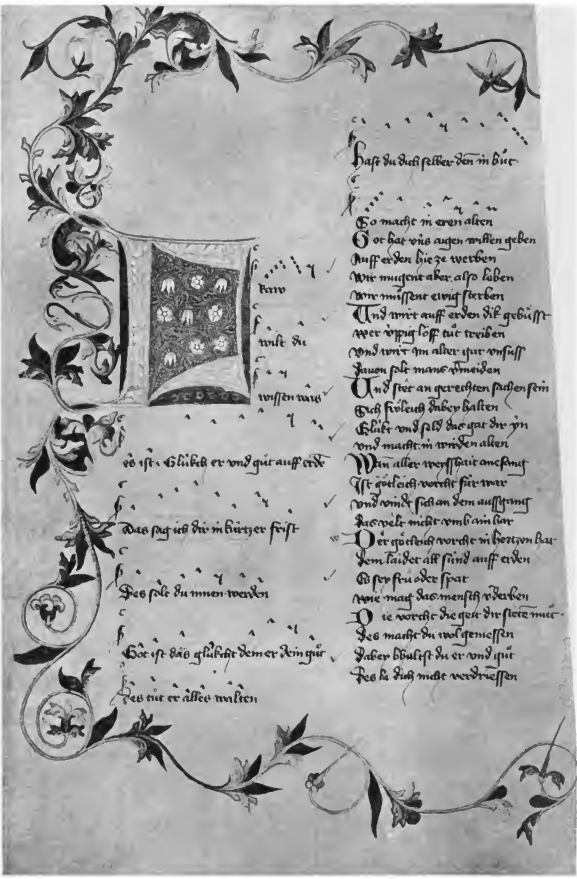 FRaw
wilt du
wissen was
es ist Glükch er vnd güt auff erde
Das sag ich dir in kurtzer frist
Des solt du innen werden
Got ist das glükcht dem er dein güt
Des tüt er alles walten
Hast du dich selber den in hüt
So macht in eren alten
Got hat vns augen willen geben
Auff erden hie ze werben
Wir mugent aber also leben
wir müssent ewig sterben
Und wirt auff erden dik gebüsst
wer üppig löff tüt treiben
vnd wirt im alter gar vnsuss
dauon solt mans vermeiden
Und stet an gerechten sachen sein
Sich frölich dabey halten
Glükt vnd seld das gat dir yn
vnd macht in wirden alten
Wan aller weysshait anefang
Ist götleich vorcht für war
vnd vindt sich an dem aussgang
das velt nicht vmb ain har
Der götleich vorcht in hertzen hat
dem laidet all sünd auff erden
Es sey fru oder spat
wie mag das mensch verderben
Die vorcht die geit dir stete müt
des macht du wol geniessen
dabey bhaltst du er vnd güt
Des la dich nicht verdriessen